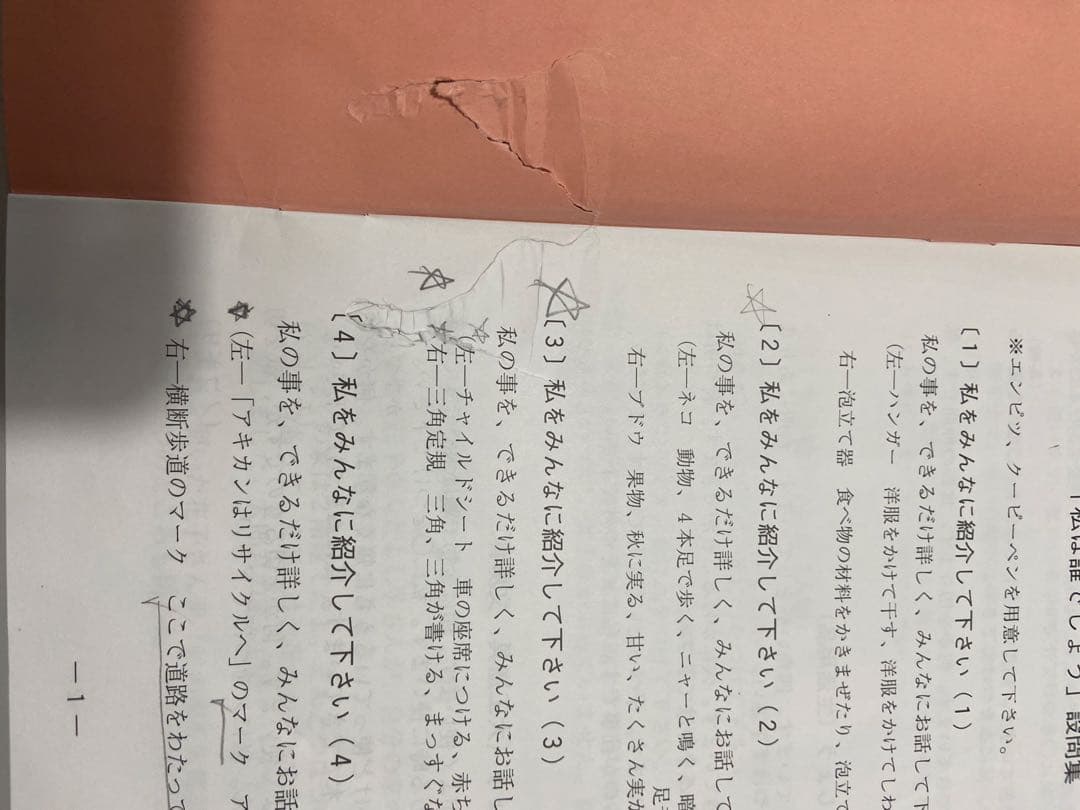 私は誰でしょう」設問集
※エンピツ、クーピーペンを用意して下さい。
〔1〕私をみんなに紹介して下さい（1）
私の事を、できるだけ詳しく、みんなにお話して下
（左―ハンガー　洋服をかけて干す、洋服をかけてしわ
右―泡立て器　食べ物の材料をかきまぜたり、泡立て
〔2〕私をみんなに紹介して下さい（2）
私の事を、できるだけ詳しく、みんなにお話して
（左―ネコ　動物、4本足で歩く、ニャーと鳴く、暗
足
右―ブドウ　果物、秋に実る、甘い、たくさん実が
〔3〕私をみんなに紹介して下さい（3）
私の事を、できるだけ詳しく、みんなにお話し
（左―チャイルドシート　車の座席につける、赤ち
右―三角定規　三角、三角が書ける、まっすぐな
〔4〕私をみんなに紹介して下さい（4）
私の事を、できるだけ詳しく、みんなにお話
（左―「アキカンはリサイクルへ」のマーク　ア
右―横断歩道のマーク　ここで道路をわたって
―1―